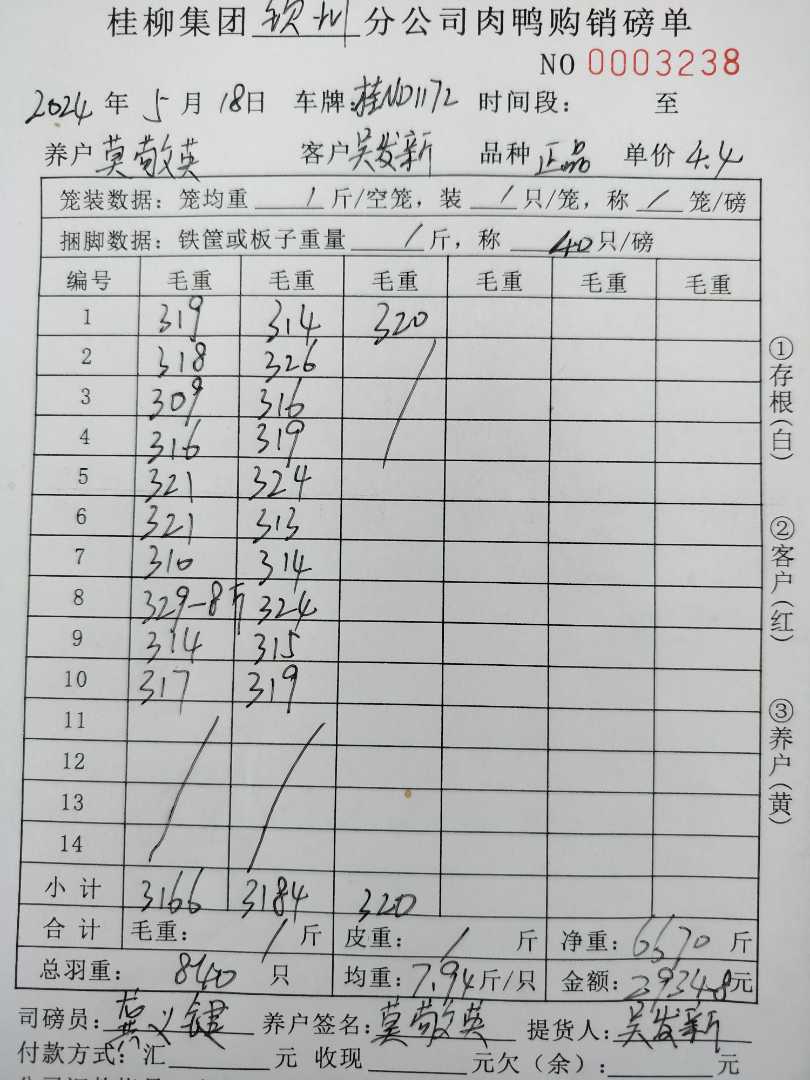 桂柳集团 钦州 分公司肉鸭购销磅单
NO 0003238
2024 年 5 月 18日 车牌:桂ND1172 时间段: 至
养户 莫敬英 客户 吴发新 品种 正品 单价 4.4
笼装数据: 笼均重 / 斤/空笼, 装 / 只/笼, 称 / 笼/磅
捆脚数据: 铁筐或板子重量 / 斤, 称 40 只/磅
编号 毛重 毛重 毛重 毛重 毛重 毛重
1 319 314 320
2 318 326
3 309 316
4 316 319
5 321 324
6 321 313
7 310 314
8 329-8斤 324
9 314 315
10 317 319
11
12
13
14
小计 3166 3184 320
合计 毛重: / 斤 皮重: / 斤 净重: 6670 斤
总羽重: 840 只 均重: 7.94 斤/只 金额: 29348 元
司磅员: 义键 养户签名: 莫敬英 提货人: 吴发新
付款方式: 汇 元 收现 元欠(余): 元
①存根(白)
②客户(红)
③养户(黄)